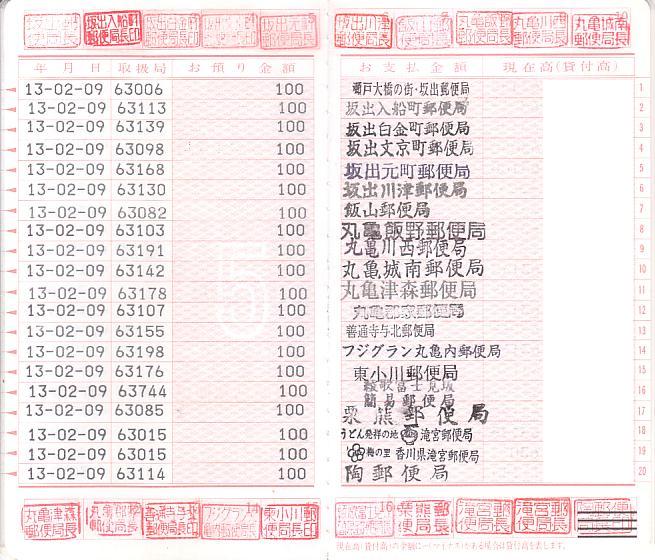 坂出入船町郵便局長印
坂出白金町郵便局長印
坂出元町郵便局長印
坂出川津郵便局長印
丸亀飯野郵便局長印
丸亀川西郵便局長印
丸亀城南郵便局長
年月日 取扱局 お預り金額 お支払金額 現在高(貸付高)
13-02-09 63006 100 瀬戸大橋の街・坂出郵便局 1
13-02-09 63113 100 坂出入船町郵便局 2
13-02-09 63139 100 坂出白金町郵便局 3
13-02-09 63098 100 坂出文京町郵便局 4
13-02-09 63168 100 坂出元町郵便局 5
13-02-09 63130 100 坂出川津郵便局 6
13-02-09 63082 100 飯山郵便局 7
13-02-09 63103 100 丸亀飯野郵便局 8
13-02-09 63191 100 丸亀川西郵便局 9
13-02-09 63142 100 丸亀城南郵便局 10
13-02-09 63178 100 丸亀津森郵便局 11
13-02-09 63107 100 丸亀郡家郵便局 12
13-02-09 63155 100 善通寺与北郵便局 13
13-02-09 63198 100 フジグラン丸亀内郵便局 14
13-02-09 63176 100 東小川郵便局 15
13-02-09 63744 100 綾歌富士見坂簡易郵便局 16
13-02-09 63085 100 栗熊郵便局 17
13-02-09 63015 100 うどん発祥の地 滝宮郵便局 18
13-02-09 63015 100 梅の里 香川県滝宮郵便局 19
13-02-09 63114 100 陶郵便局 20
丸亀津森郵便局長
東小川郵便局長印
16
栗熊郵便局長
滝宮郵便局長
滝宮郵便局長
現在高(貸付高)の金額に-(マイナス)がある場合は貸付高を表します。